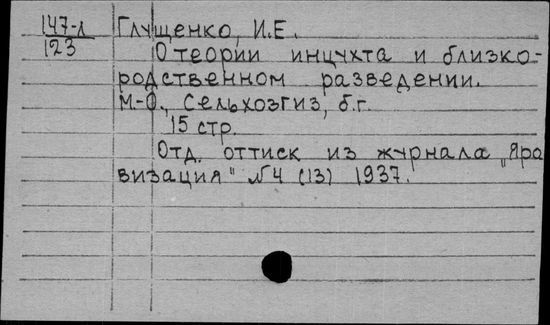 147-л Глущенко, И.Е.
123 О теории инцухта и близко-
родственном разведении.
М-О., Сельхозгиз, б.г.
15 стр.
Отд. оттиск из журнала „Яро
визация" №4 (13) 1937.